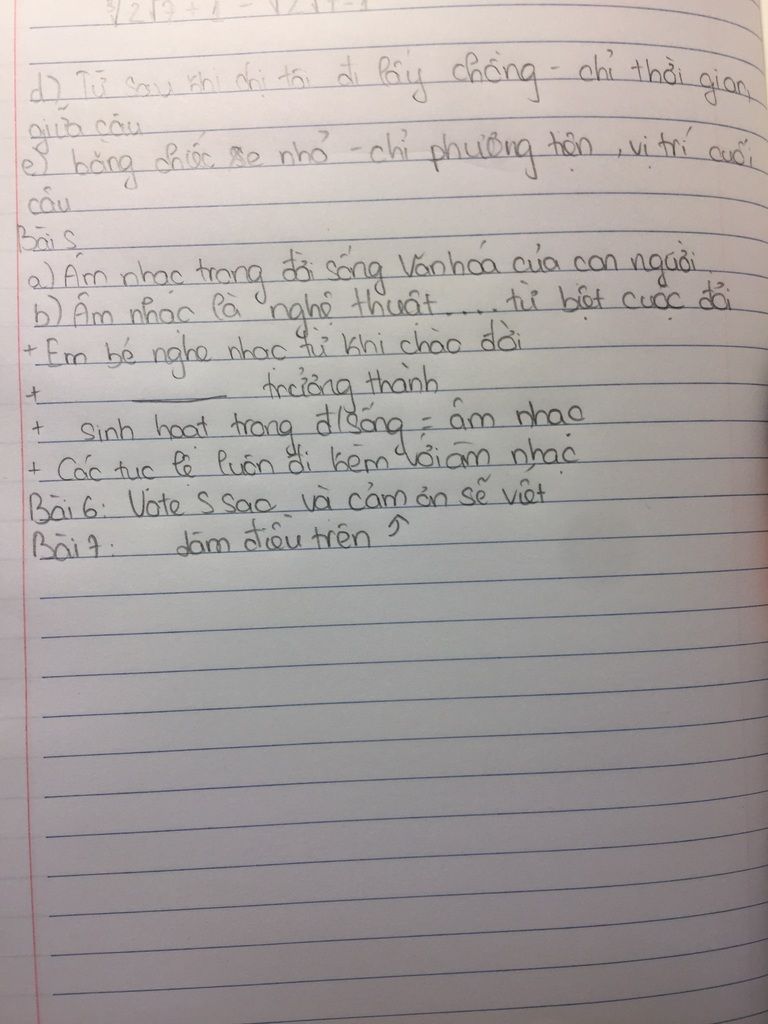 d) Từ sau khi chị tôi đi lấy chồng - chỉ thời gian,
giữa câu
e) bằng chiếc xe nhỏ - chỉ phương tiện, vị trí cuối
câu
Bài 5
a) Âm nhạc trong đời sống văn hoá của con người
b) Âm nhạc là nghệ thuật.... từ biệt cuộc đời
+ Em bé nghe nhạc từ khi chào đời
+ ——— trưởng thành
+ sinh hoạt trong đ/sống = âm nhạc
+ Các tục lệ luôn đi kèm với âm nhạc
Bài 6: Vote 5 sao và cảm ơn sẽ viết
Bài 7: làm điều trên ↑